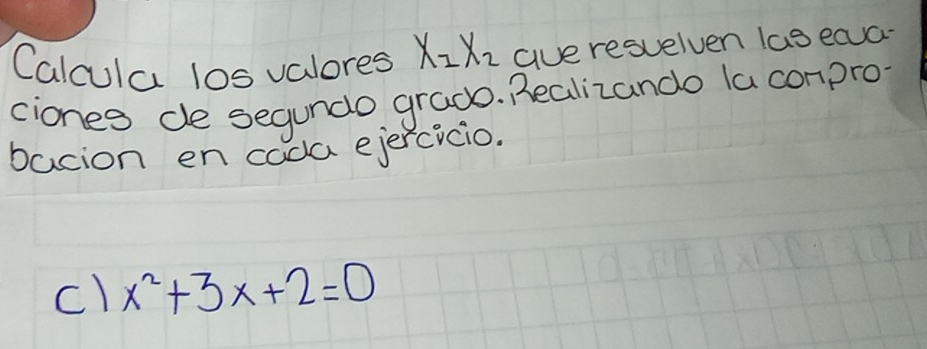 Calcula los valores X₁X₂ que resuelven las ecua-
ciones de segundo grado. Realizando la compro-
bacion en cada ejercicio.
c) x²+3x+2=0